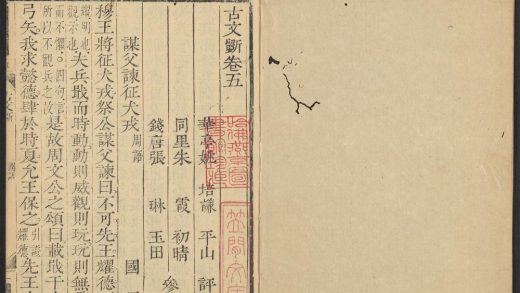 古文斲卷五
華亭姚　培謙　平山　評
同里朱　霞　初晴
錢唐張　琳　玉田　參
謀父諫征犬戎 周語
國
穆王將征犬戎祭公謀父諫曰不可先王耀德
耀明也觀示也夫兵戢而時動動則威觀則玩玩則無
而不懼。四句言所以不觀兵之故是故周文公之頌曰載戢干
弓矢我求懿德肆於時夏允王保之 先王